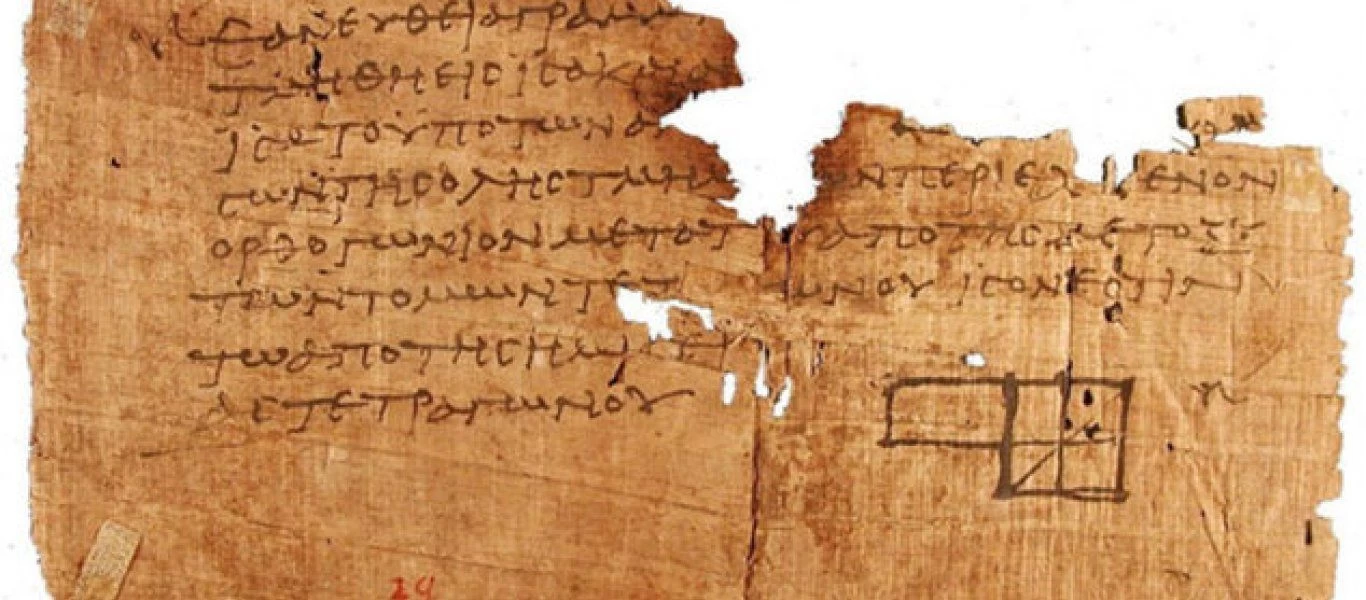 ΕΑΝΕΥΘΕΙΑΓΡΑΜΜ
ΤΜΗΘΗΕΙCΙCΑΚΑΙΑ
ΙCΑΤΟΥΠΟΤΩΝΑ
CΩΝΤΗCΟΛΗCΤΜΗΜ ΝΠΕΡΙΕΧ ΜΕΝΟΝ
ΟΡΘΟΓΩΝΙΟΝΜΕΤΑΤ ΑΠΟΤΗCΜΕΤΟΞΥ
ΤΩΝΤΟΜΩΝΤΕΤ ΩΝΟΥ ΙCΟΝΕCΤΙΝ
ΤΩΑΠΟΤΗCΗΜΙ ΕΙ
ΑCΤΕΤΡΑΓΩΝΟΥ
29